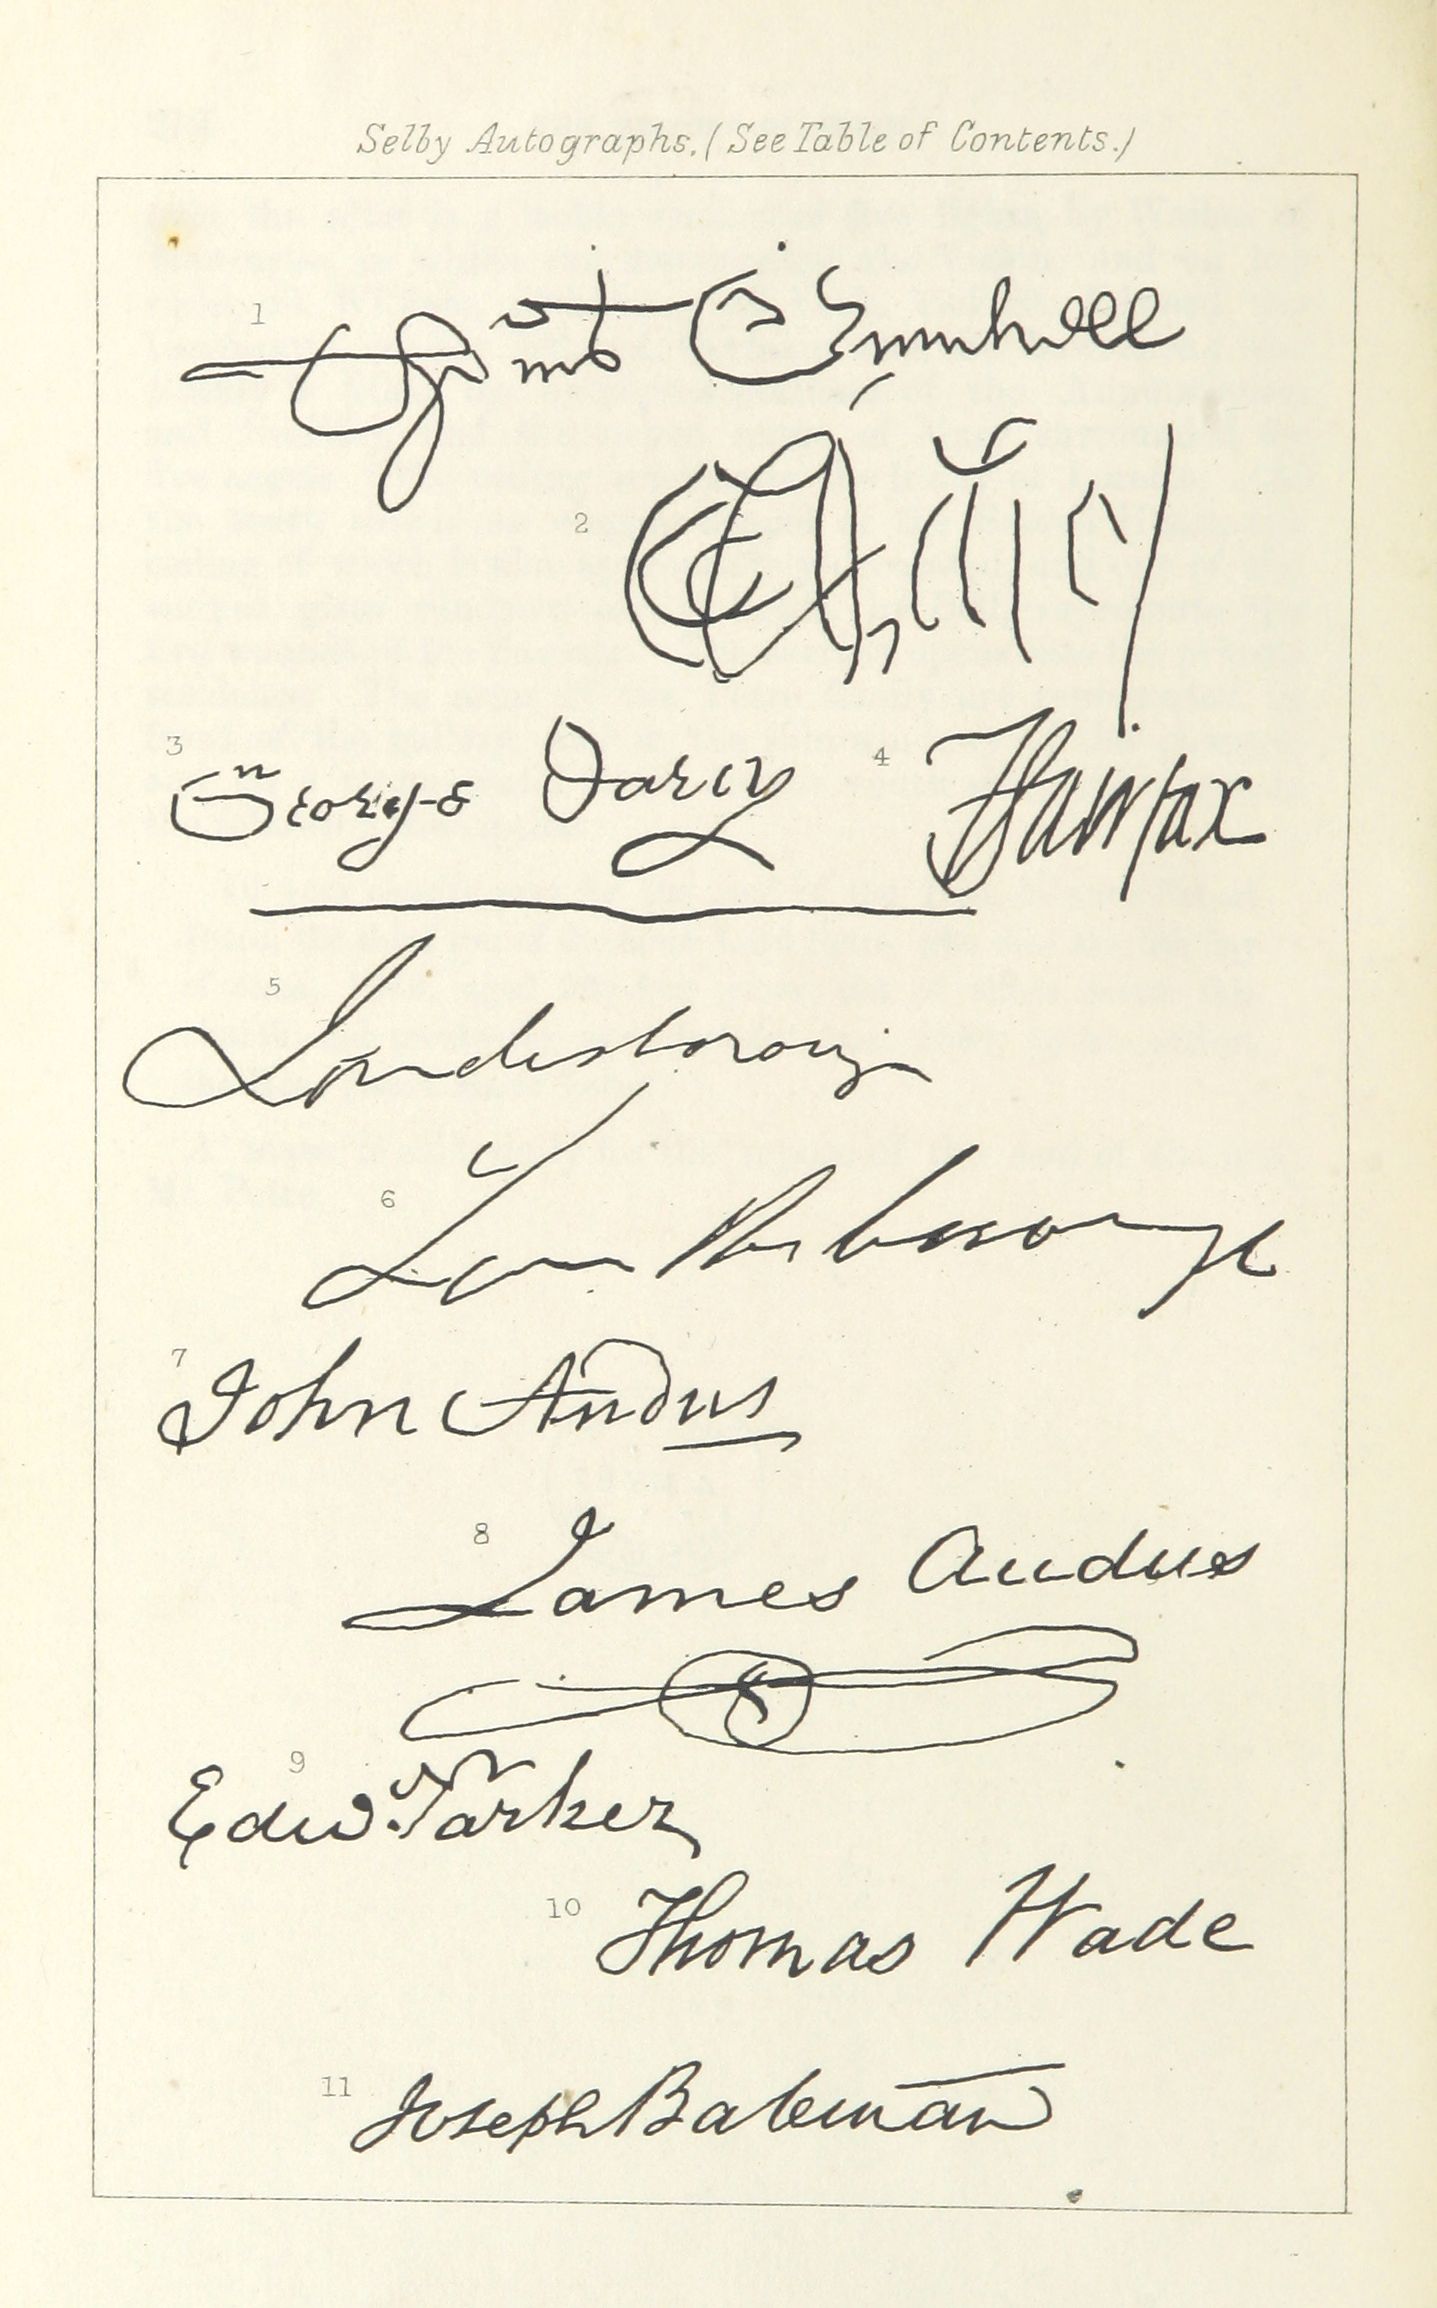 Selby Autographs. (See Table of Contents.)
1
2
3 George Darcy
4 Fairfax
5 Londesborough
6 Londesborough
7 John Audus
8 James Audus
9 Edwd. Parker
10 Thomas Wade
11 Joseph Bateman